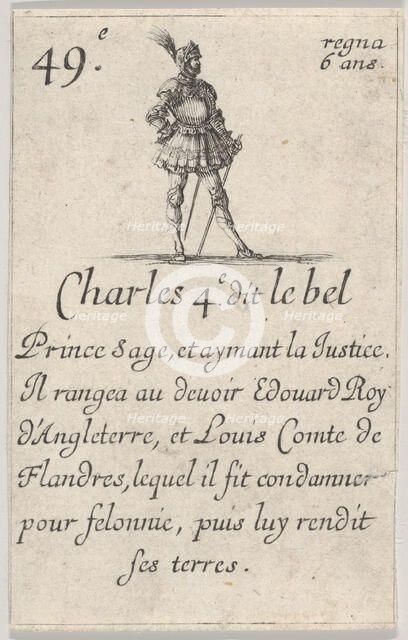 49.e
regna
6 ans.
Charles 4.e dit le bel
Prince sage, et aymant la Justice.
Il rangea au devoir Edouard Roy
d'Angleterre, et Louis Comte de
Flandres, lequel il fit condamner
pour felonnie, puis luy rendit
ses terres.
Heritage
Heritage
Heritage
Heritage
Heritage
Heritage
Heritage
Heritage